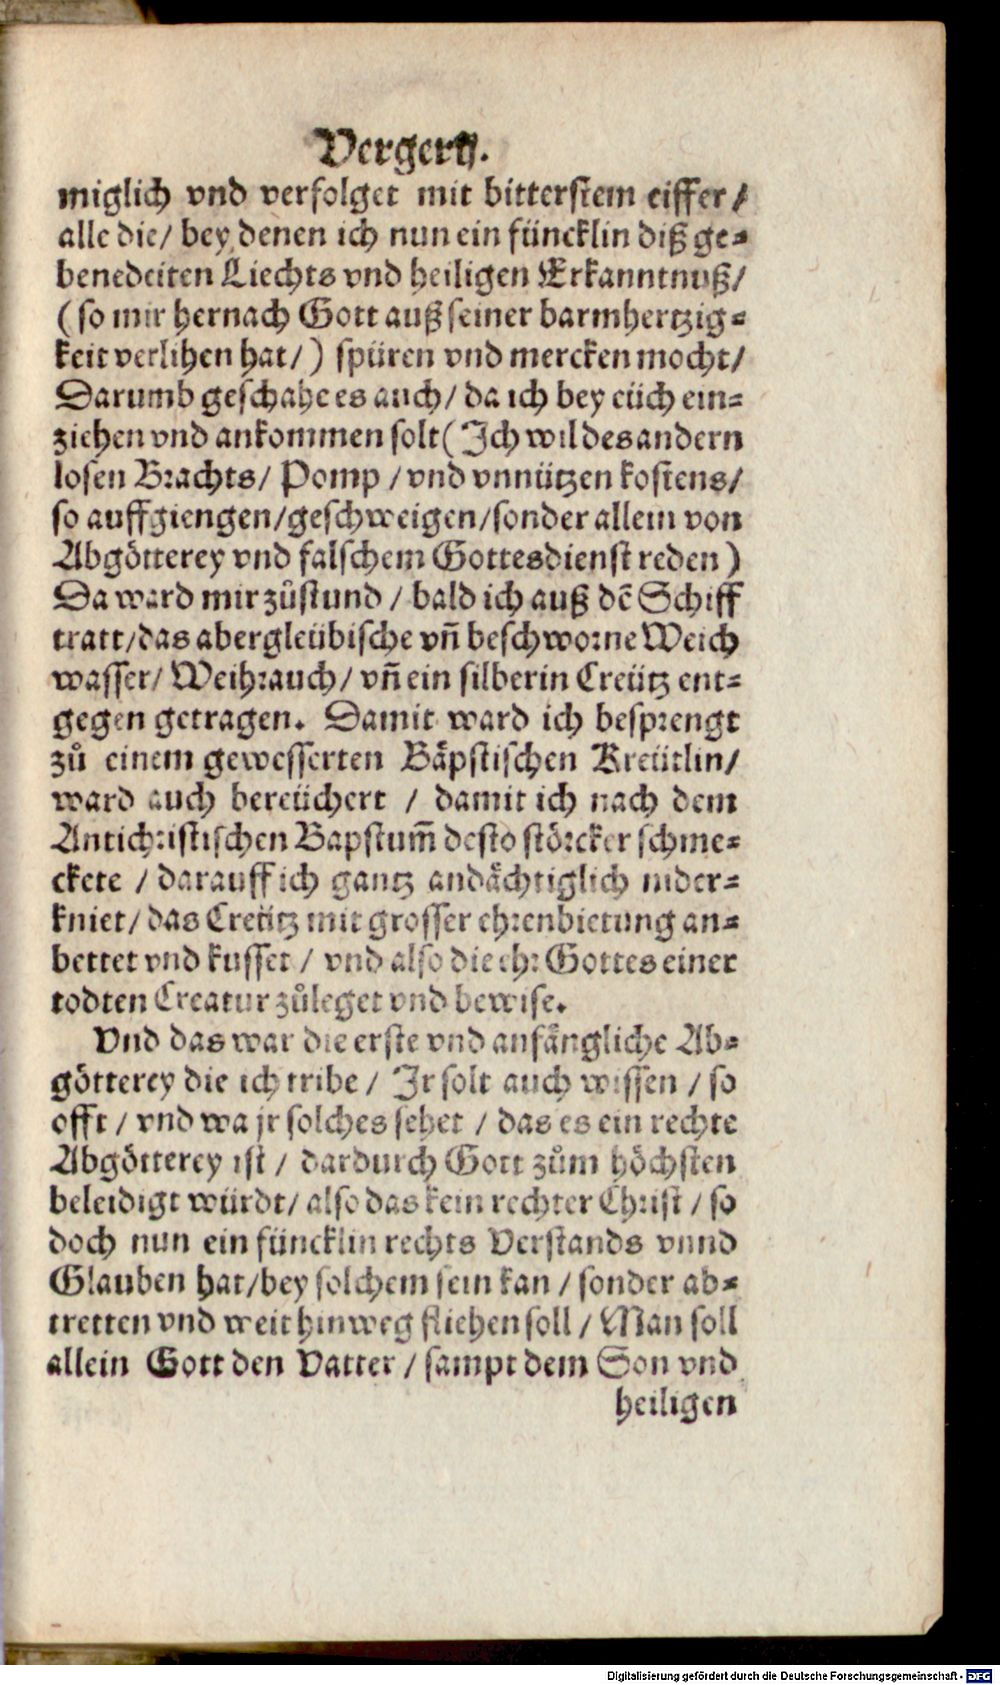 Vergerij.
miglich vnd verfolget mit bitterstem eiffer /
alle die / bey denen ich nun ein füncklin diß ge-
benedeiten Liechts vnd heiligen Erkanntnuß /
( so mir hernach Gott auß seiner barmhertzig-
keit verlihen hat / ) spüren vnd mercken mocht /
Darumb geschahe es auch / da ich bey eüch ein-
ziehen vnd ankommen solt ( Ich wil des andern
losen Brachts / Pomp / vnd vnnützen kostens /
so auffgiengen / geschweigen / sonder allein von
Abgötterey vnd falschem Gottesdienst reden )
Da ward mir zůstund / bald ich auß dē Schiff
tratt / das abergleübische vñ beschworne Weich
wasser / Weihrauch / vñ ein silberin Creütz ent-
gegen getragen. Damit ward ich besprengt
zů einem gewesserten Bäpstischen Kreütlin /
ward auch bereüchert / damit ich nach dem
Antichristischen Bapstum̃ desto störcker schme-
ckete / darauff ich gantz andächtiglich nider-
kniet / das Creütz mit grosser ehrenbietung an-
bettet vnd kusset / vnd also die ehr Gottes einer
todten Creatur zůleget vnd bewise.
Vnd das war die erste vnd anfängliche Ab-
götterey die ich tribe / Ir solt auch wissen / so
offt / vnd wa jr solches sehet / das es ein rechte
Abgötterey ist / dardurch Gott zům höchsten
beleidigt würdt / also das kein rechter Christ / so
doch nun ein füncklin rechts Verstands vnnd
Glauben hat / bey solchem sein kan / sonder ab-
tretten vnd weit hinweg fliehen soll / Man soll
allein Gott den Vatter / sampt dem Son vnd
heiligen
Digitalisierung gefördert durch die Deutsche Forschungsgemeinschaft - DFG